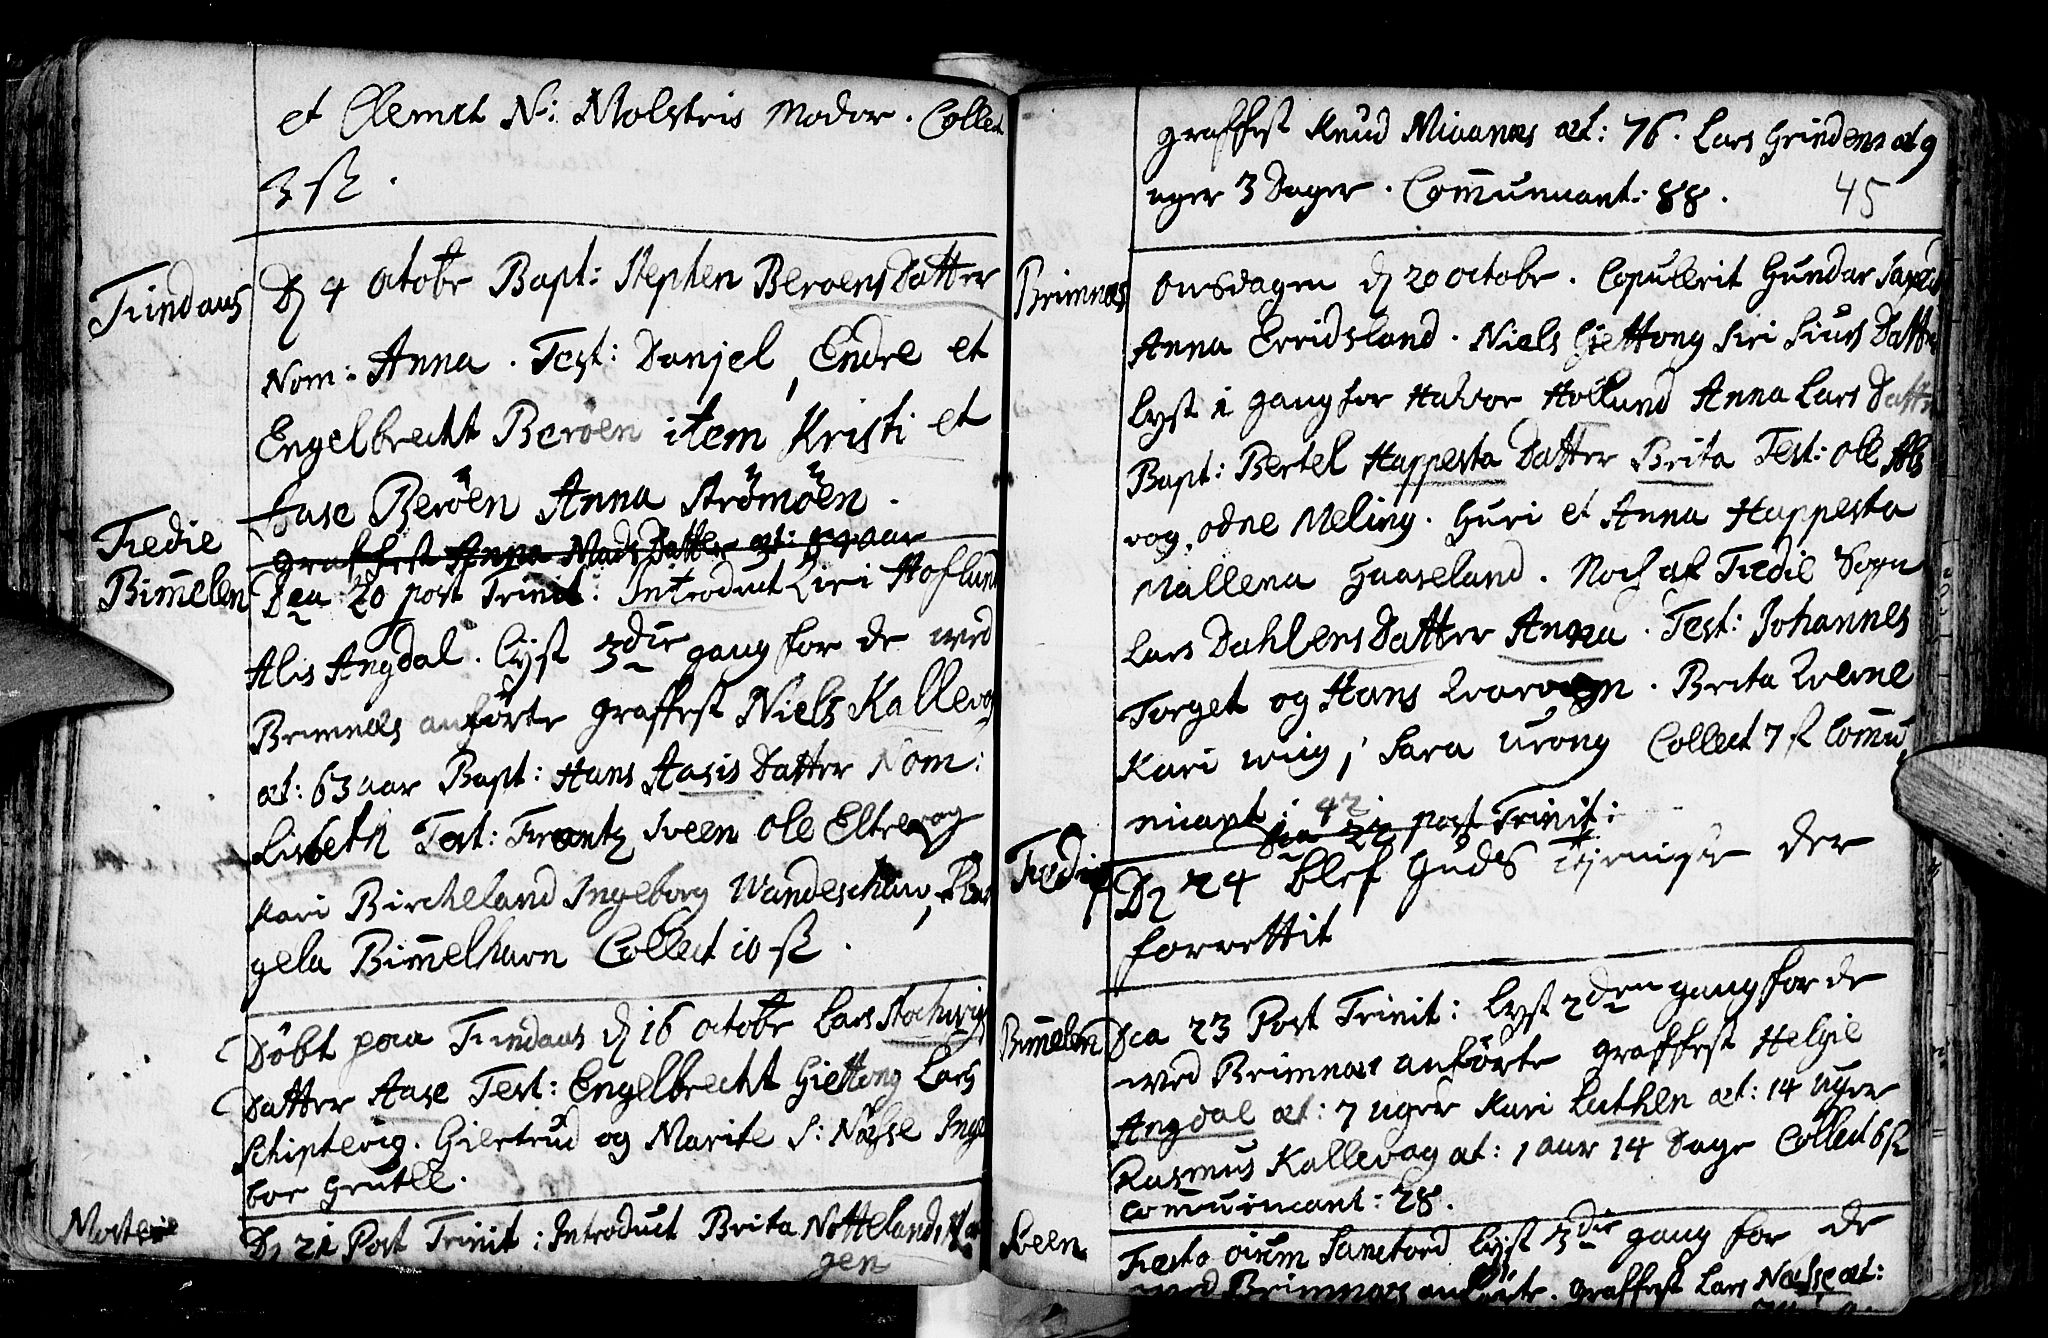 et Clemet N: Molstris Modor. Collect
3 ß.
Tindaas
D 4 octobr Bapt: Stephen Beroens Datter
Nom: Anna. Test: Danjel, Endre et
Engelbrecht Beroen item Kristi et
Aase Beröen Anna Strömöen.
Graffest Anna Mads Datter æt: aar
Fiedie
Bim̄elen
Dca 20 post Trinit: Introduct Liri Hoflund
Alis Angdal. Lyst 3die gang for de wed
Brimnæs anförte graffest Niels Kallevog
æt: 63 aar Bapt: Hans Aasis Datter Nom:
Lisbeth Test: Frantz Sveen Ole Eltrevog
Kari Bircheland Ingeborg Wandeschaw,
gela Bim̄elhavn Collect 10 ß.
Döbt paa Tindaas d 16 octobr Lars Stochwigs
Datter Aase Test: Engelbrecht Giettong Lars
Schiptevig. Giertrud og Marite S: Næsse Inge
bor Grutle.
Mosterie
D 21 Post Trinit: Introduct Brita Nottelands
gen
graffest Knud Miaanæs æt: 76. Lars Grindens æt 9
uger 3 Dager. Com̄unicant: 88.
45
Brimnæs
Onsdagen d 20 octobr. Copulerit Gundar
Anna Erridsland. Niels Giettong Siri Siurs Datter
Lyst 1 gang for Halvor Hollund Anna Lars Datter
Bapt: Bertel Happesta Datter Brita Test: Ole Als
vog, Odne Meling. Guri et Anna Happesta
Mallena Gaaseland. Noch af Fiedie Sogn
Lars Dahlens Datter Anna. Test: Johannes
Torget og Hans. Brita
Kari wiig, Sara urong Collect 7 ß Com̄u
nicant: 42
Dca 22 post Trinit:
Fiedie
D 24 blef Guds Tjeniste der
forrettit
Bim̄elen
Dca 23 Post Trinit: Lyst 2den gang for de
wed Brimnæs anförte graffest Helgie
Angdal æt: 7 uger Kari Luthen æt: 14 uger
Rasmus Kallevog æt: 1 aar 14 Dage Collect 6 ß
Com̄unicant: 28.
Sveen
Festo oiūm Sanctord Lyst 3die gang for de
wed Brimnæs anförte. graffest Lars Næsse æt: